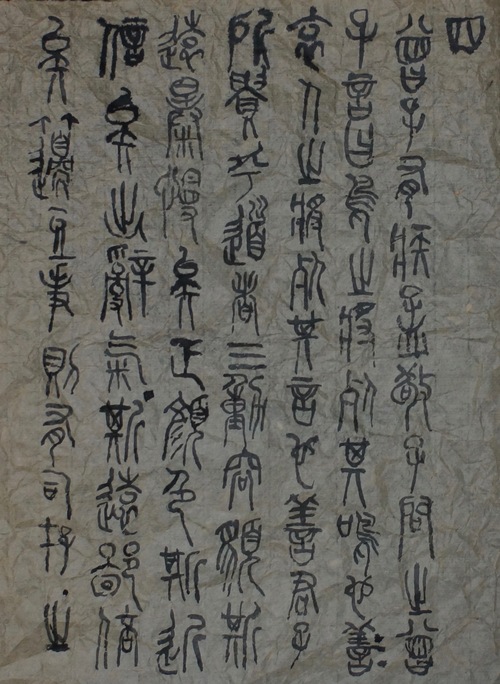 四
曾子有疾孟敬子問之曾
子言曰鳥之將死其鳴也善
哀人之將死其言也善君子
所貴乎道者三動容貌斯
遠暴慢矣正顏色斯近
信矣出辭氣斯遠鄙倍
矣籩豆事則有司存之